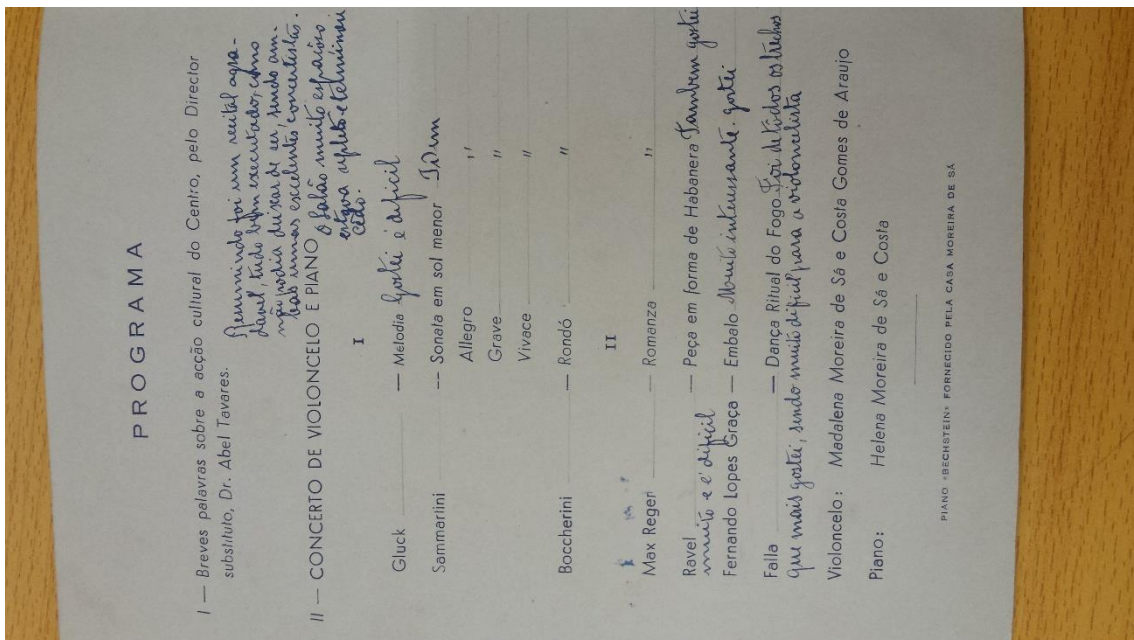 PROGRAMA
I — Breves palavras sobre a acção cultural do Centro, pelo Director
substituto, Dr. Abel Tavares.
Resumindo foi um recital agra-
dável, tudo bem executado, como
não podia deixar de ser, sendo am-
bas umas excelentes concertistas.
II — CONCERTO DE VIOLONCELO E PIANO
O Salão muito espaíoso
estava repleto e terminou
cêdo.
I
Gluck — Melodia Gostei é dificil
Sammartini — Sonata em sol menor Idem
Allegro "
Grave "
Vivace "
Boccherini — Rondó "
II
Max Regeri — Romanza "
Ravel — Peça em forma de Habanera Tambem gostei
muito e é dificil
Fernando Lopes Graça — Embalo Muito interessante. gostei
Falla — Dança Ritual do Fogo Foi de todos os trechos
que mais gostei, sendo muito dificil para a violoncelista
Violoncelo: Madalena Moreira de Sá e Costa Gomes de Araujo
Piano: Helena Moreira de Sá e Costa
PIANO «BECHSTEIN» FORNECIDO PELA CASA MOREIRA DE SÁ